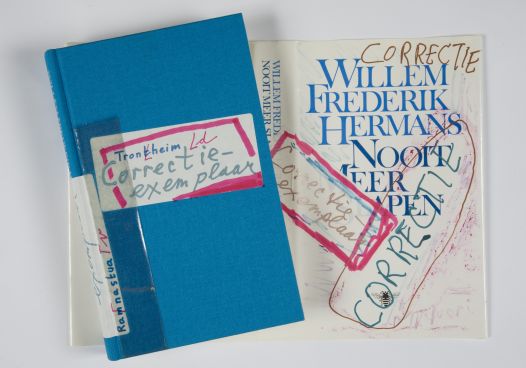 Tronkheim Ld
Correctie-
exemplaar
Ramnastua
WILLEM FRED.
NOOIT MEER SL
CORRECTIE
WILLEM
FREDERIK
HERMANS
NOOIT
MEER
APEN
Correctie-
exemplaar
CORRECTIE